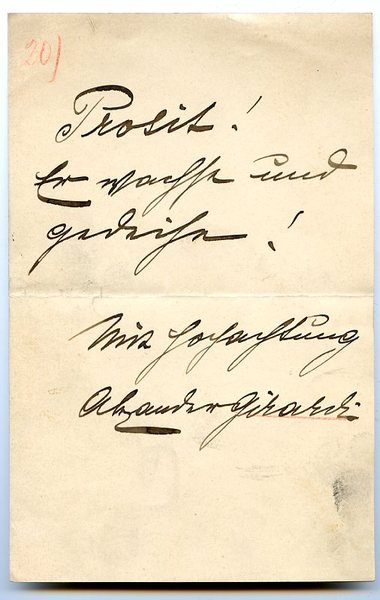 20)
Prosit!
Er wachse und
gedeihe!
Mit Hochachtung
Alexander Girardi